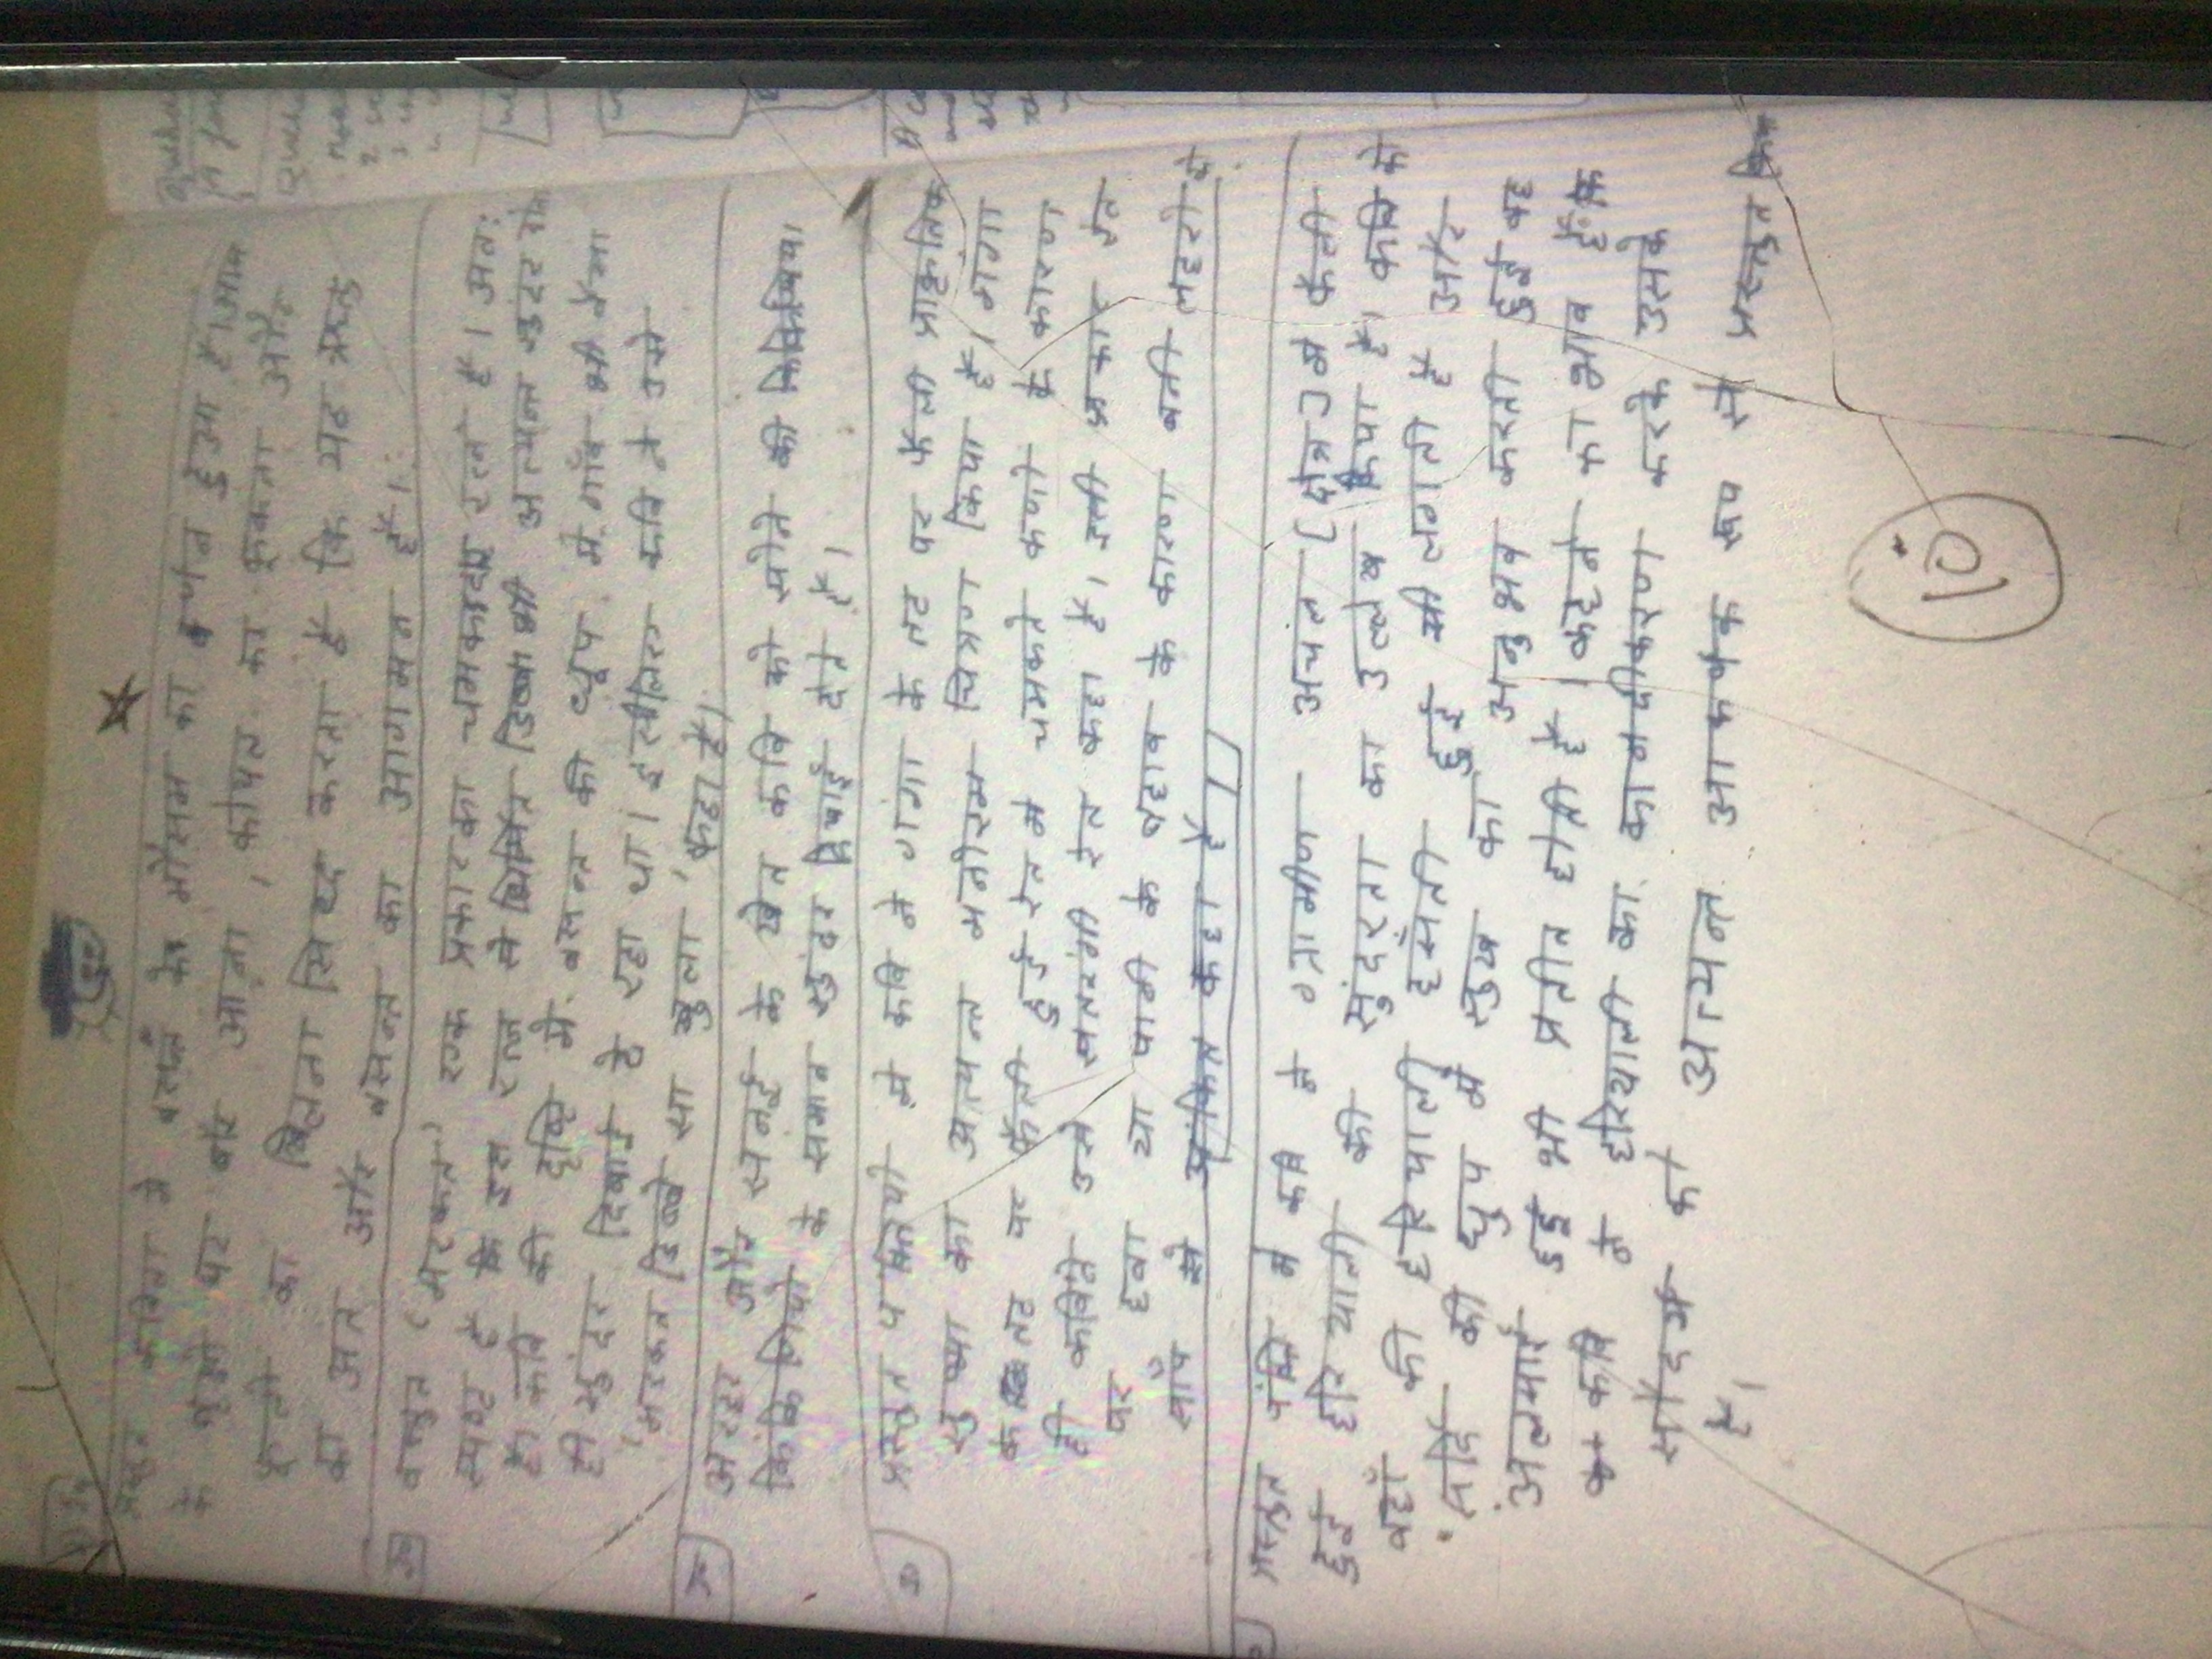 प्रस्तुत कविता में वसंत के मौसम का वर्णन हुआ है। आम
के वृक्षों पर बौर आना, कोयल का कूकना और
फूलों का खिलना सिद्ध करता है कि यह ऋतु
का अंत और वसंत का आगमन है।
वस्तुत (मरकत) एक प्रकार का चमकदार रत्न है। अतः
स्पष्ट है कि इस रत्न से निर्मित डिब्बा भी अत्यन्त सुंदर
कवि की दृष्टि में वसन्त की धूप में गांव भी वैसा
ही सुंदर दिखाई दे रहा था। इसीलिए कवि ने उसे
'मरकत डिब्बे सा खुला' कहा है।
अरहर और सनई के खेत कवि को सोने की किंकिणियों
के समान सुंदर दिखाई देते हैं।
प्रस्तुत पंक्तियों में कवि ने गंगा के तट पर फैली प्राकृतिक
सुषमा का अत्यन्त मनोरम चित्रण किया है। गंगा
के तट पर फैली हुई रेत में चमकते कणों के कारण
ही कवि ने उसे सतरंगी रेत कहा है, उसी प्रकार रेत
पर हवा या पानी के बहाव के कारण बनी लहरों
साँप से अंकित कहा है।
प्रस्तुत पंक्ति में कवि ने ग्रामीण अंचल [क्षेत्र] में फैली
हुई हरियाली की सुंदरता का उल्लेख किया है। कवि
वहाँ की हरियाली हँसती हुई सी लगती है और
सर्दी की धूप में सुख का अनुभव करती हुई वह
अलसाई हुई भी प्रतीत होती है। कहने का भाव है कि
कवि ने हरियाली का मानवीकरण करके उसके
सौंदर्य को अत्यन्त आकर्षक रूप में प्रस्तुत किया
है।
10